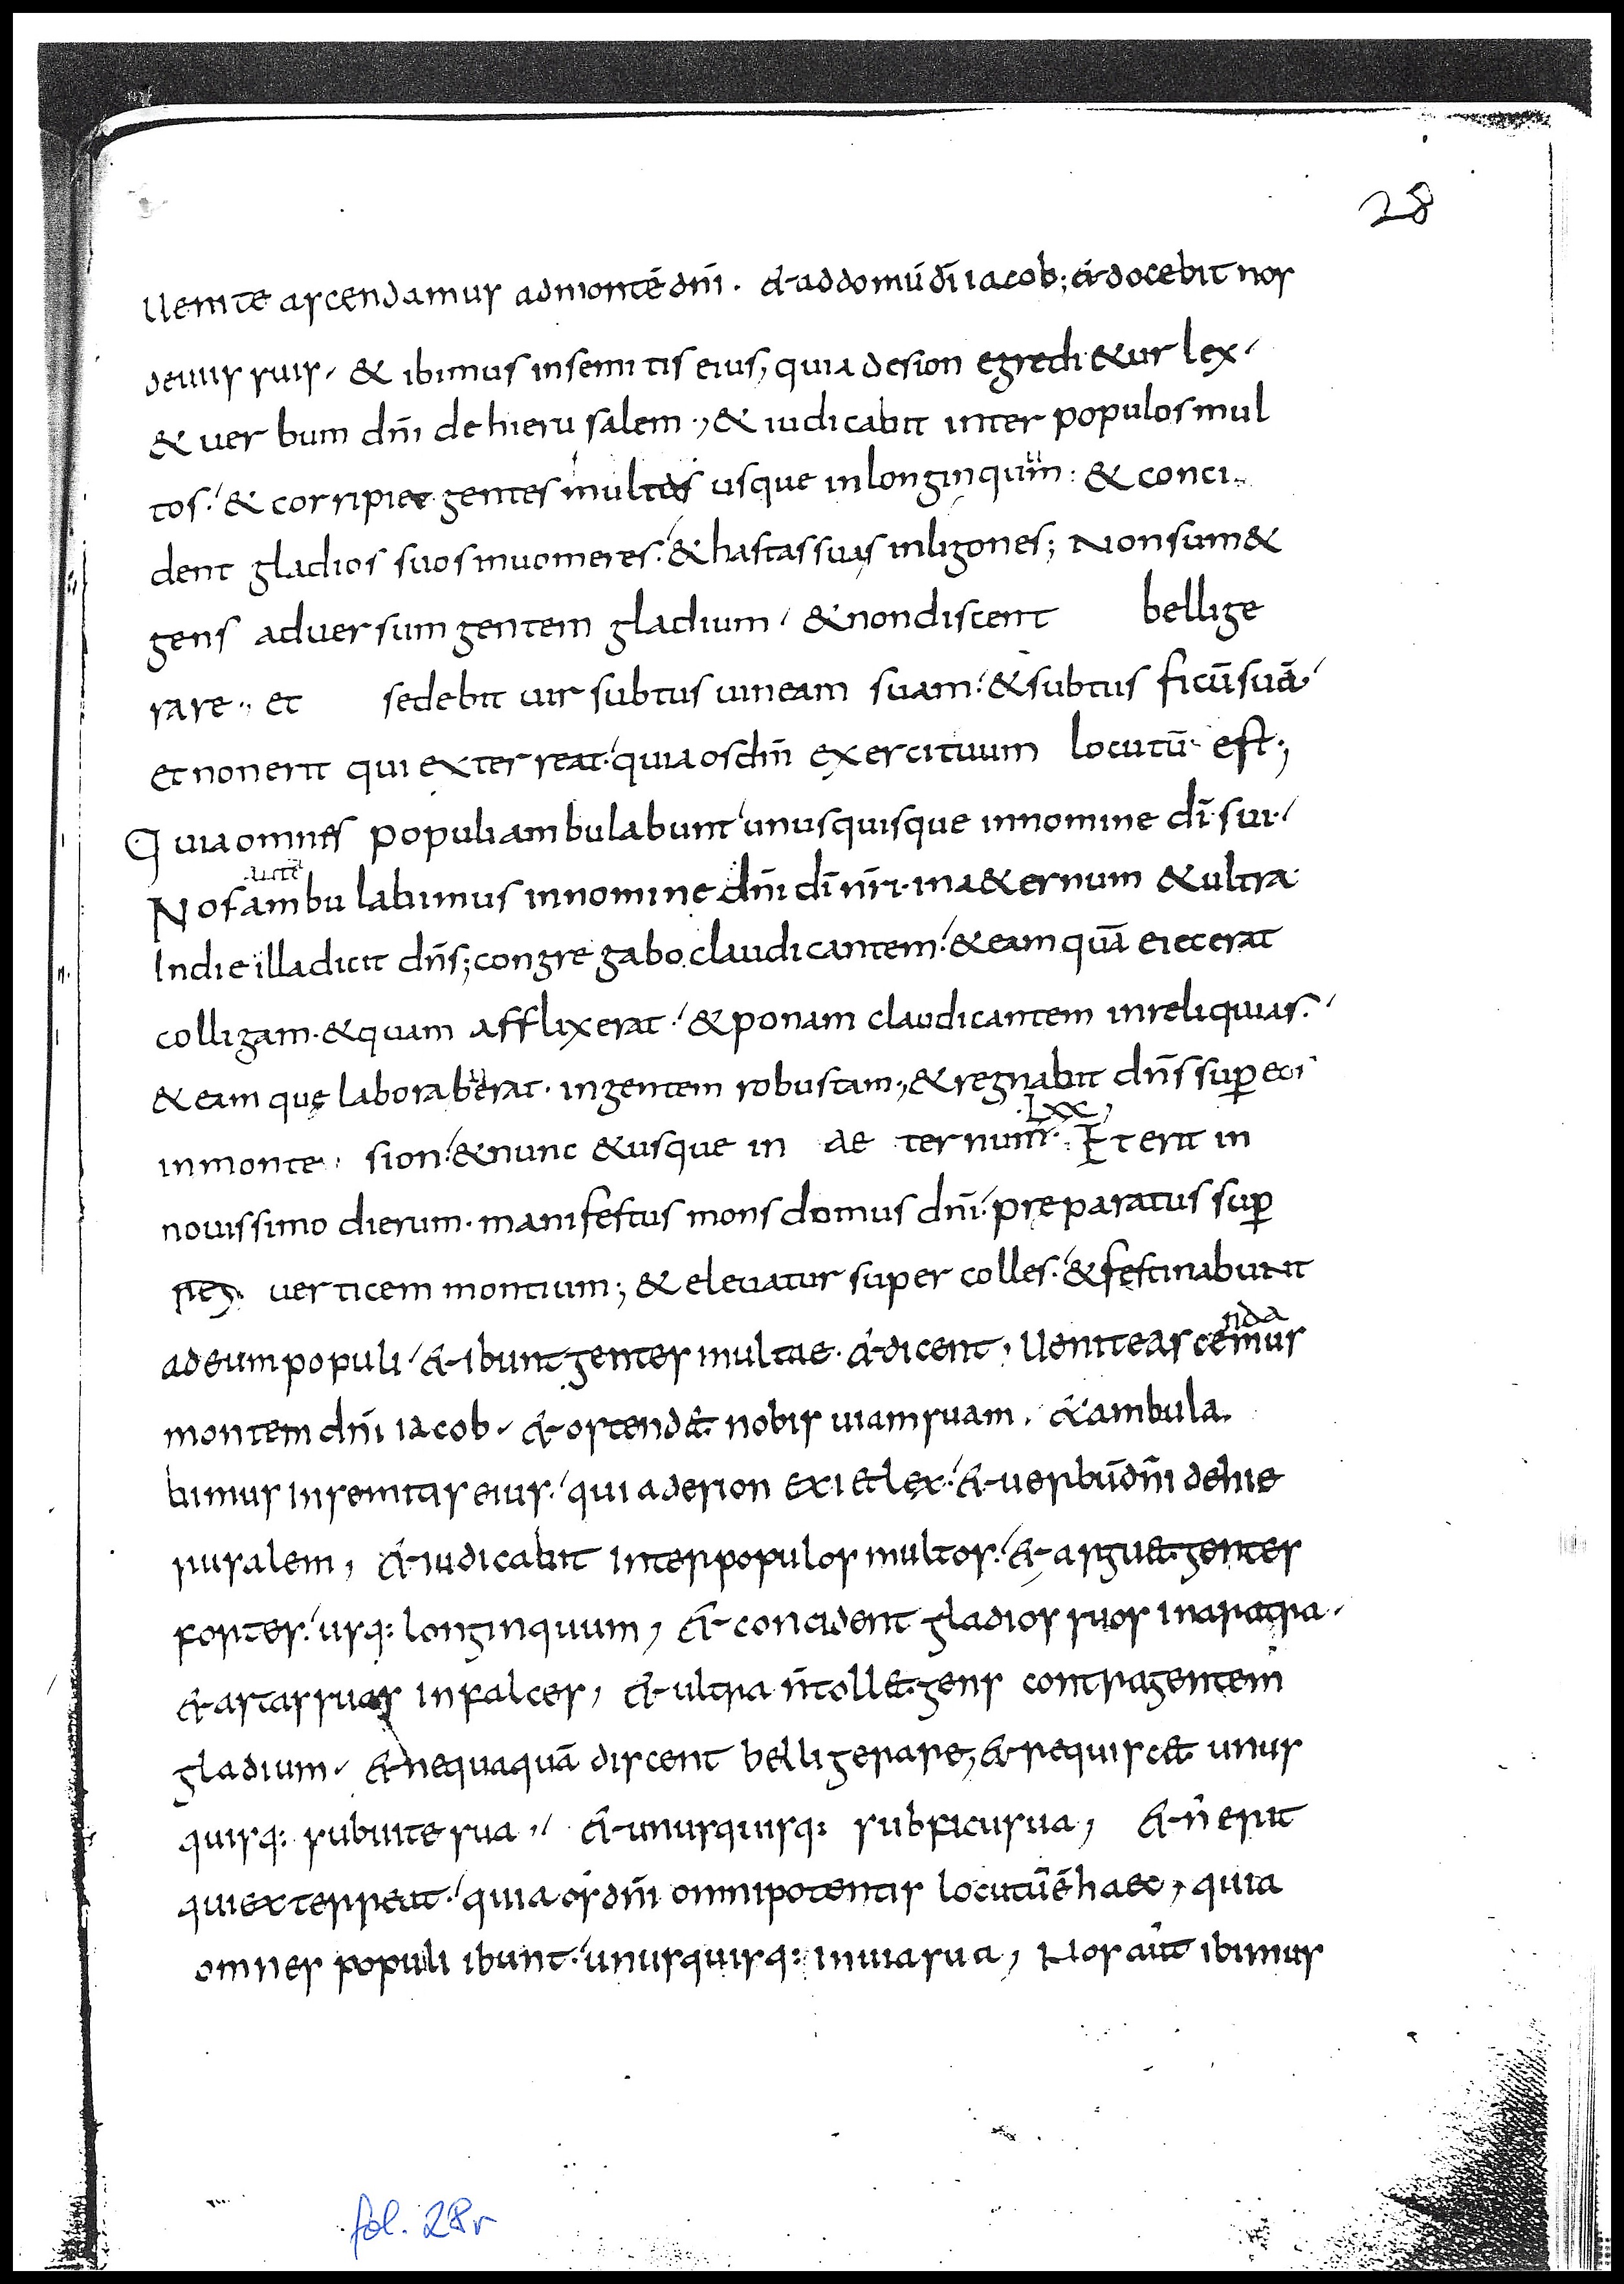 28
Uenite ascendamus admontē dn̄i. & addomū dī iacob; & docebit nos
deuiis suis. & ibimus insemitis eius, quia desion egredi&ur lex.
& uerbum dn̄i de hierusalem., & iudicabit inter populos mul
tos. & corripiet gentes multas usque inlonginquum: & conci..
dent gladios suos inuomeres. & hastas suas inligones; Non sum&
gens aduersum gentem gladium. & non discent bellige
rare., et sedebit uir subtus uineam suam. & subtus ficū suā.
et non erit qui exterreat. quia os dn̄i exercituum locutū est;
Quia omnes populi ambulabunt unusquisque innomine dī sui.
Nos ambulabimus innomine dn̄i dī nr̄i. ina&ernum & ultra.
Indie illa dicit dn̄s; congregabo claudicantem. & eam quā eiecerat
colligam. & quam afflixerat. & ponam claudicantem inreliquias.
& eam quę laborauerat. in gentem robustam., & regnabit dn̄s sup eos
.Lxx,
inmonte. sion. & nunc & usque in ae ternum. Et erit in
nouissimo dierum. manifestus mons domus dn̄i. pręparatus sup
uerticem montium; & eleuatur super colles. & festinabunt
nda
ad eum populi. & ibunt gentes multae. & dicent, Uenite ascemus
montem dn̄i iacob. & ostend& nobis uiam suam. & ambula.
bimus insemitas eius. quia desion exi& lex. & uerbū dn̄i dehie
rusalem, & iudicabit inter populos multos. & argu& gentes
fortes. usq: longinquum, & concident gladios suos inaratra.
& astas suas infalces, & ultra n̄ toll& gens contra gentem
gladium. & nequaquā discent belligerare, & requiesc& unus
quisq: subuite sua,, & unusquisq: subficu sua, & n̄ erit
qui exterreat. quia os dn̄i omnipotentis locutū ē haec, quia
omnes populi ibunt. unusquisq: inuia sua, Nos aūt ibimus
fol. 28r